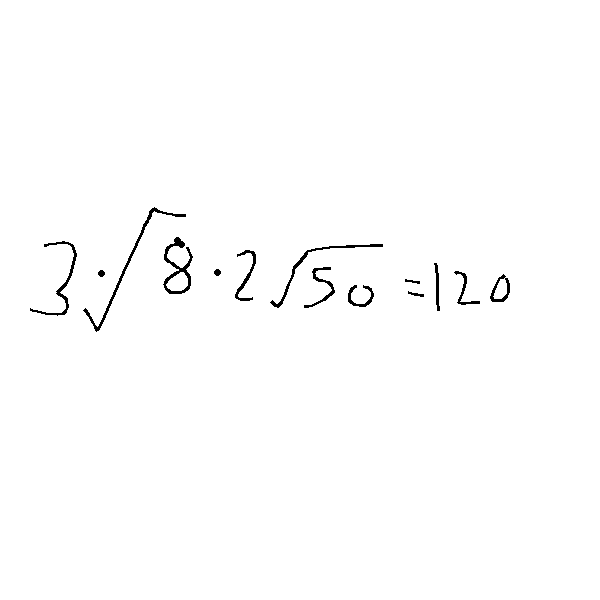 3·√8·2√50=120